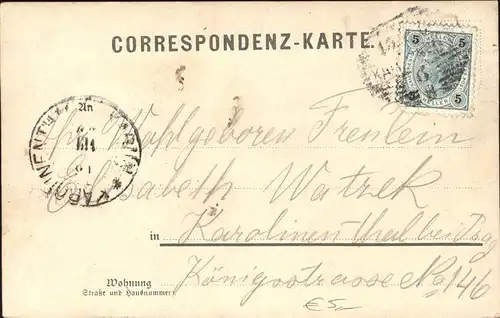 CORRESPONDENZ-KARTE.
5 5
5 5
An
Wohlgeboren Freulein
Elisabeth Watzek
in Karolinenthal bei Prag
Wohnung
Straße und Hausnummer
Königsstrasse No 146
€5,-